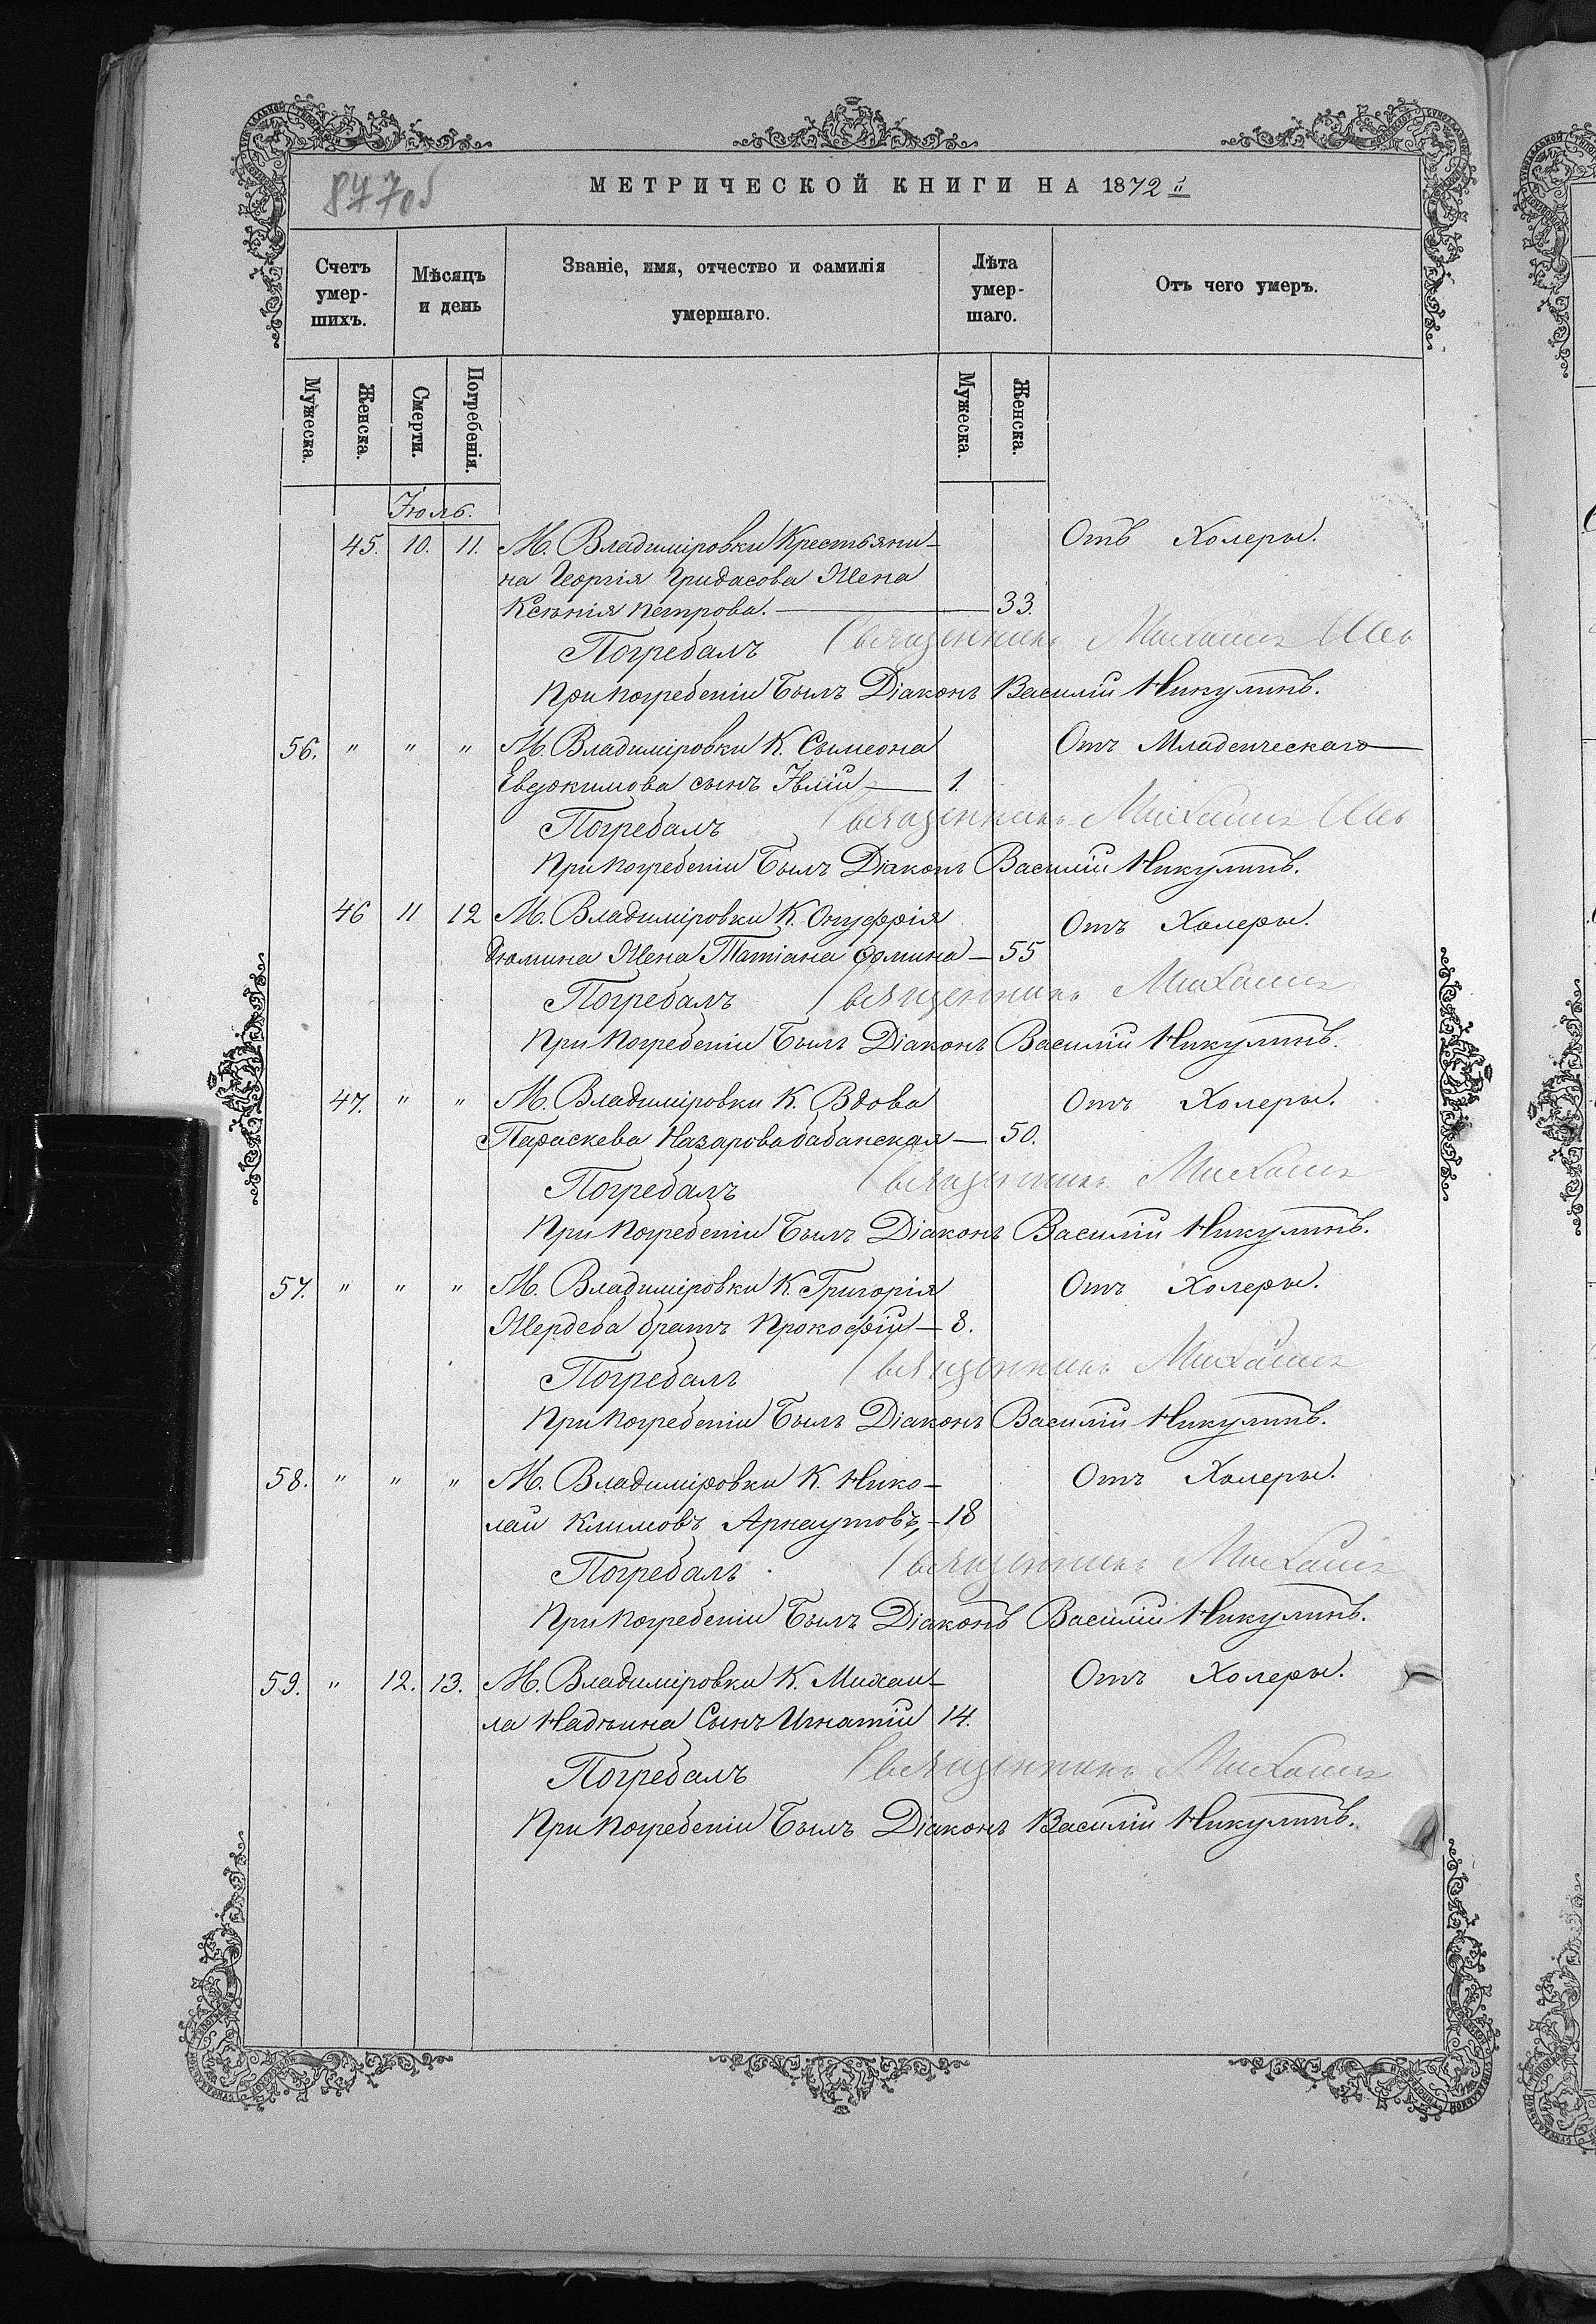 МЕТРИЧЕСКОЙ КНИГИ НА 1872й
Счетъ умер-шихъ.
Мѣсяцъ и день
Званіе, имя, отчество и фамилія умершаго.
Лѣта умер-шаго.
Отъ чего умеръ.
Мужеска. Женска. Смерти. Погребенія. Мужеска. Женска.
Іюль.
45. 10. 11. М. Владиміровки Крестьяни- Отъ Холеры.
на Георгія Гридасова Жена
Ксенія Петрова. — 33.
Погребалъ Священникъ Михаилъ
При погребеніи былъ Діаконъ Василій Никулинъ.
56. " " " М. Владиміровки К. Сѵмеона Отъ Младенческаго
Евдокимова сынъ — 1.
Погребалъ Священникъ Михаилъ
При погребеніи былъ Діаконъ Василій Никулинъ.
46 11 12 М. Владиміровки К. Онуфрія Отъ Холеры.
Дюмина Жена Татіана Ѳомина — 55
Погребалъ Священникъ Михаилъ
При погребеніи былъ Діаконъ Василій Никулинъ.
47. " " М. Владиміровки К. Вдова Отъ Холеры.
Параскева Назарова бабанская — 50.
Погребалъ Священникъ Михаилъ
При погребеніи былъ Діаконъ Василій Никулинъ.
57. " " " М. Владиміровки К. Григорія Отъ Холеры.
Жердева братъ Прокофій — 8.
Погребалъ Священникъ Михаилъ
При погребеніи былъ Діаконъ Василій Никулинъ.
58. " " " М. Владиміровки К. Нико- Отъ Холеры.
лай Климовъ Арнаутовъ, - 18
Погребалъ Священникъ Михаилъ
При погребеніи былъ Діаконъ Василій Никулинъ.
59. " 12. 13. М. Владиміровки К. Михаи- Отъ Холеры.
ла Надѣина Сынъ Игнатій 14.
Погребалъ Священникъ Михаилъ
При погребеніи былъ Діаконъ Василій Никулинъ.